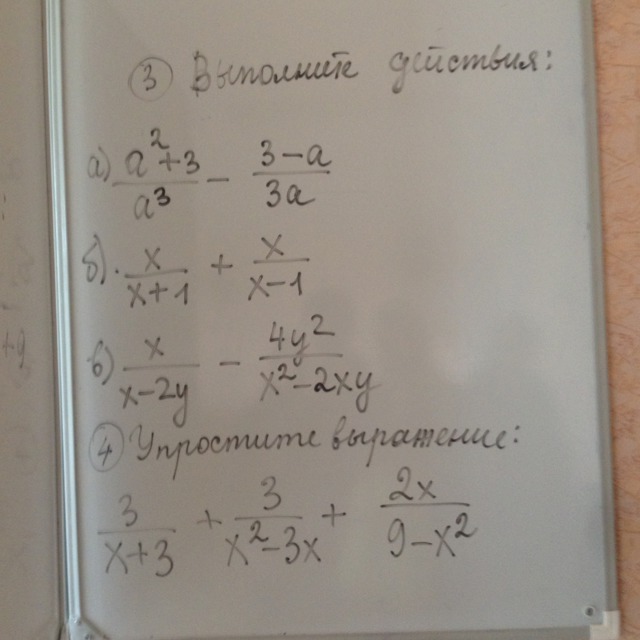 ③ Выполните действия:
а) (a²+3)/a³ − (3−a)/3a
б). x/(x+1) + x/(x−1)
в) x/(x−2y) − 4y²/(x²−2xy)
④ Упростите выражение:
3/(x+3) + 3/(x²−3x) + 2x/(9−x²)